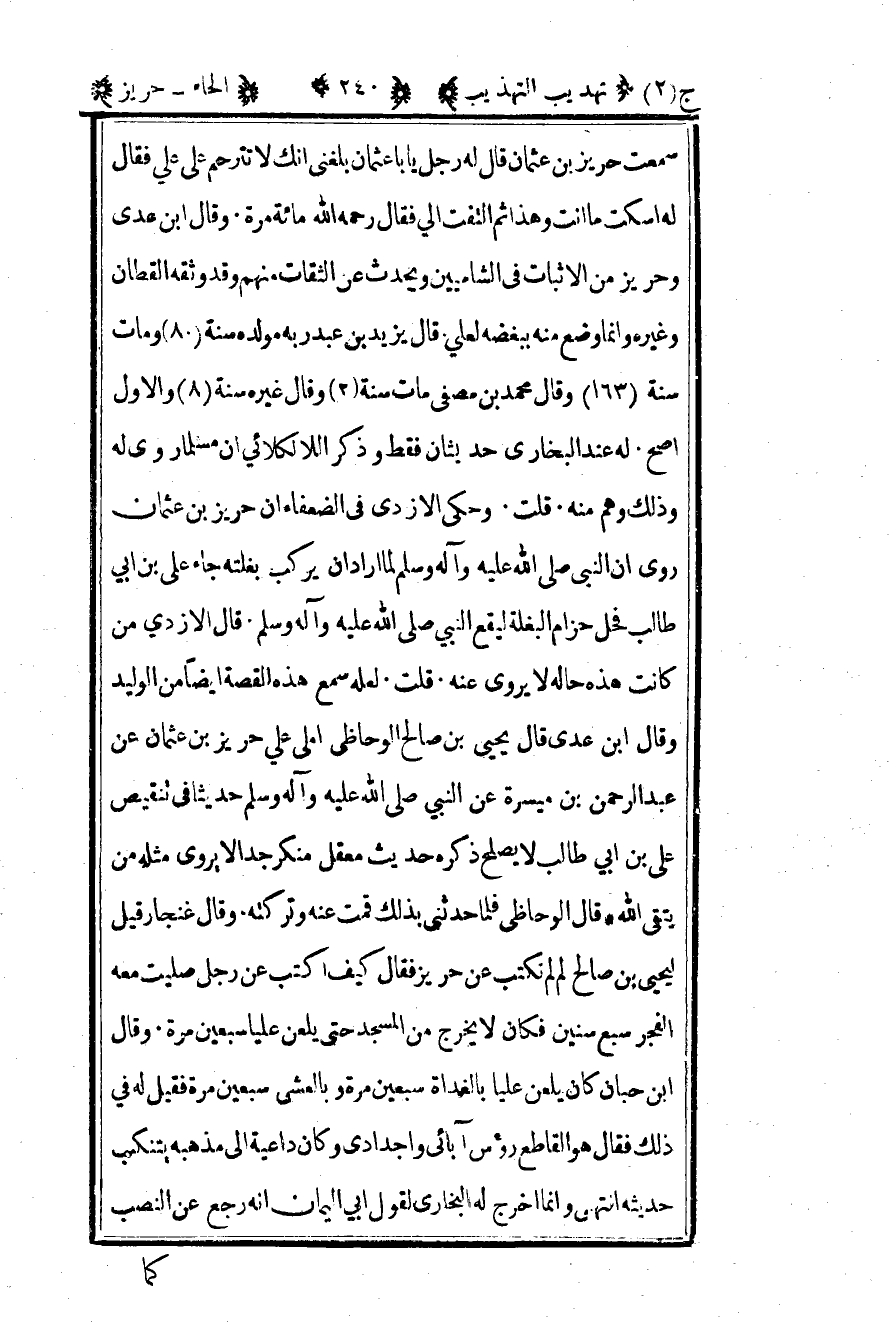 ج(٢) تهذيب التهذيب ٢٤٠ الحاء - حريز
سمعت حريز بن عثمان قال له رجل يابا عثمان بلغني انك لا تترحم على علي فقال
له اسكت ما انت وهذا ثم التفت الي فقال رحمه الله مائة مرة · وقال ابن عدى
وحريز من الاثبات فى الشاميين ويحدث عن الثقات منهم وقد وثقه القطان
وغيره وانما وضع منه ببغضه لعلي · قال يزيد بن عبد ربه مولده سنة (٨٠) ومات
سنة (١٦٣) وقال محمد بن مصفى مات سنة (٢) وقال غيره سنة (٨) والاول
اصح · له عند البخارى حديثان فقط وذكر اللالكلائي ان مسلما روى له
وذلك وهم منه · قلت · وحكى الازدى فى الضعفاء ان حريز بن عثمان
روى ان النبي صلى الله عليه وآله وسلم لما اراد ان يركب بغلته جاء على بن ابي
طالب فحل حزام البغلة ليقع النبي صلى الله عليه وآله وسلم · قال الازدي من
كانت هذه حاله لا يروى عنه · قلت · لعله سمع هذه القصة ايضاً من الوليد
وقال ابن عدى قال يحيى بن صالح الوحاظى املى علي حريز بن عثمان عن
عبد الرحمن بن ميسرة عن النبي صلى الله عليه وآله وسلم حديثا فى تنقيص
على بن ابي طالب لا يصلح ذكره حديث معقل منكر جدا لا يروى مثله من
يتقى الله * قال الوحاظى فلما حدثنى بذلك قمت عنه وتركته · وقال غنجار قيل
ليحيى بن صالح لم لم نكتب عن حريز فقال كيف اكتب عن رجل صليت معه
الفجر سبع سنين فكان لا يخرج من المسجد حتى يلعن عليا سبعين مرة · وقال
ابن حبان كان يلعن عليا بالغداة سبعين مرة وبالعشى سبعين مرة فقيل له في
ذلك فقال هو القاطع رؤس آبائى واجدادى وكان داعية الى مذهبه يتنكب
حديثه انتهى وانما اخرج له البخارى لقول ابي اليمان انه رجع عن النصب
كما